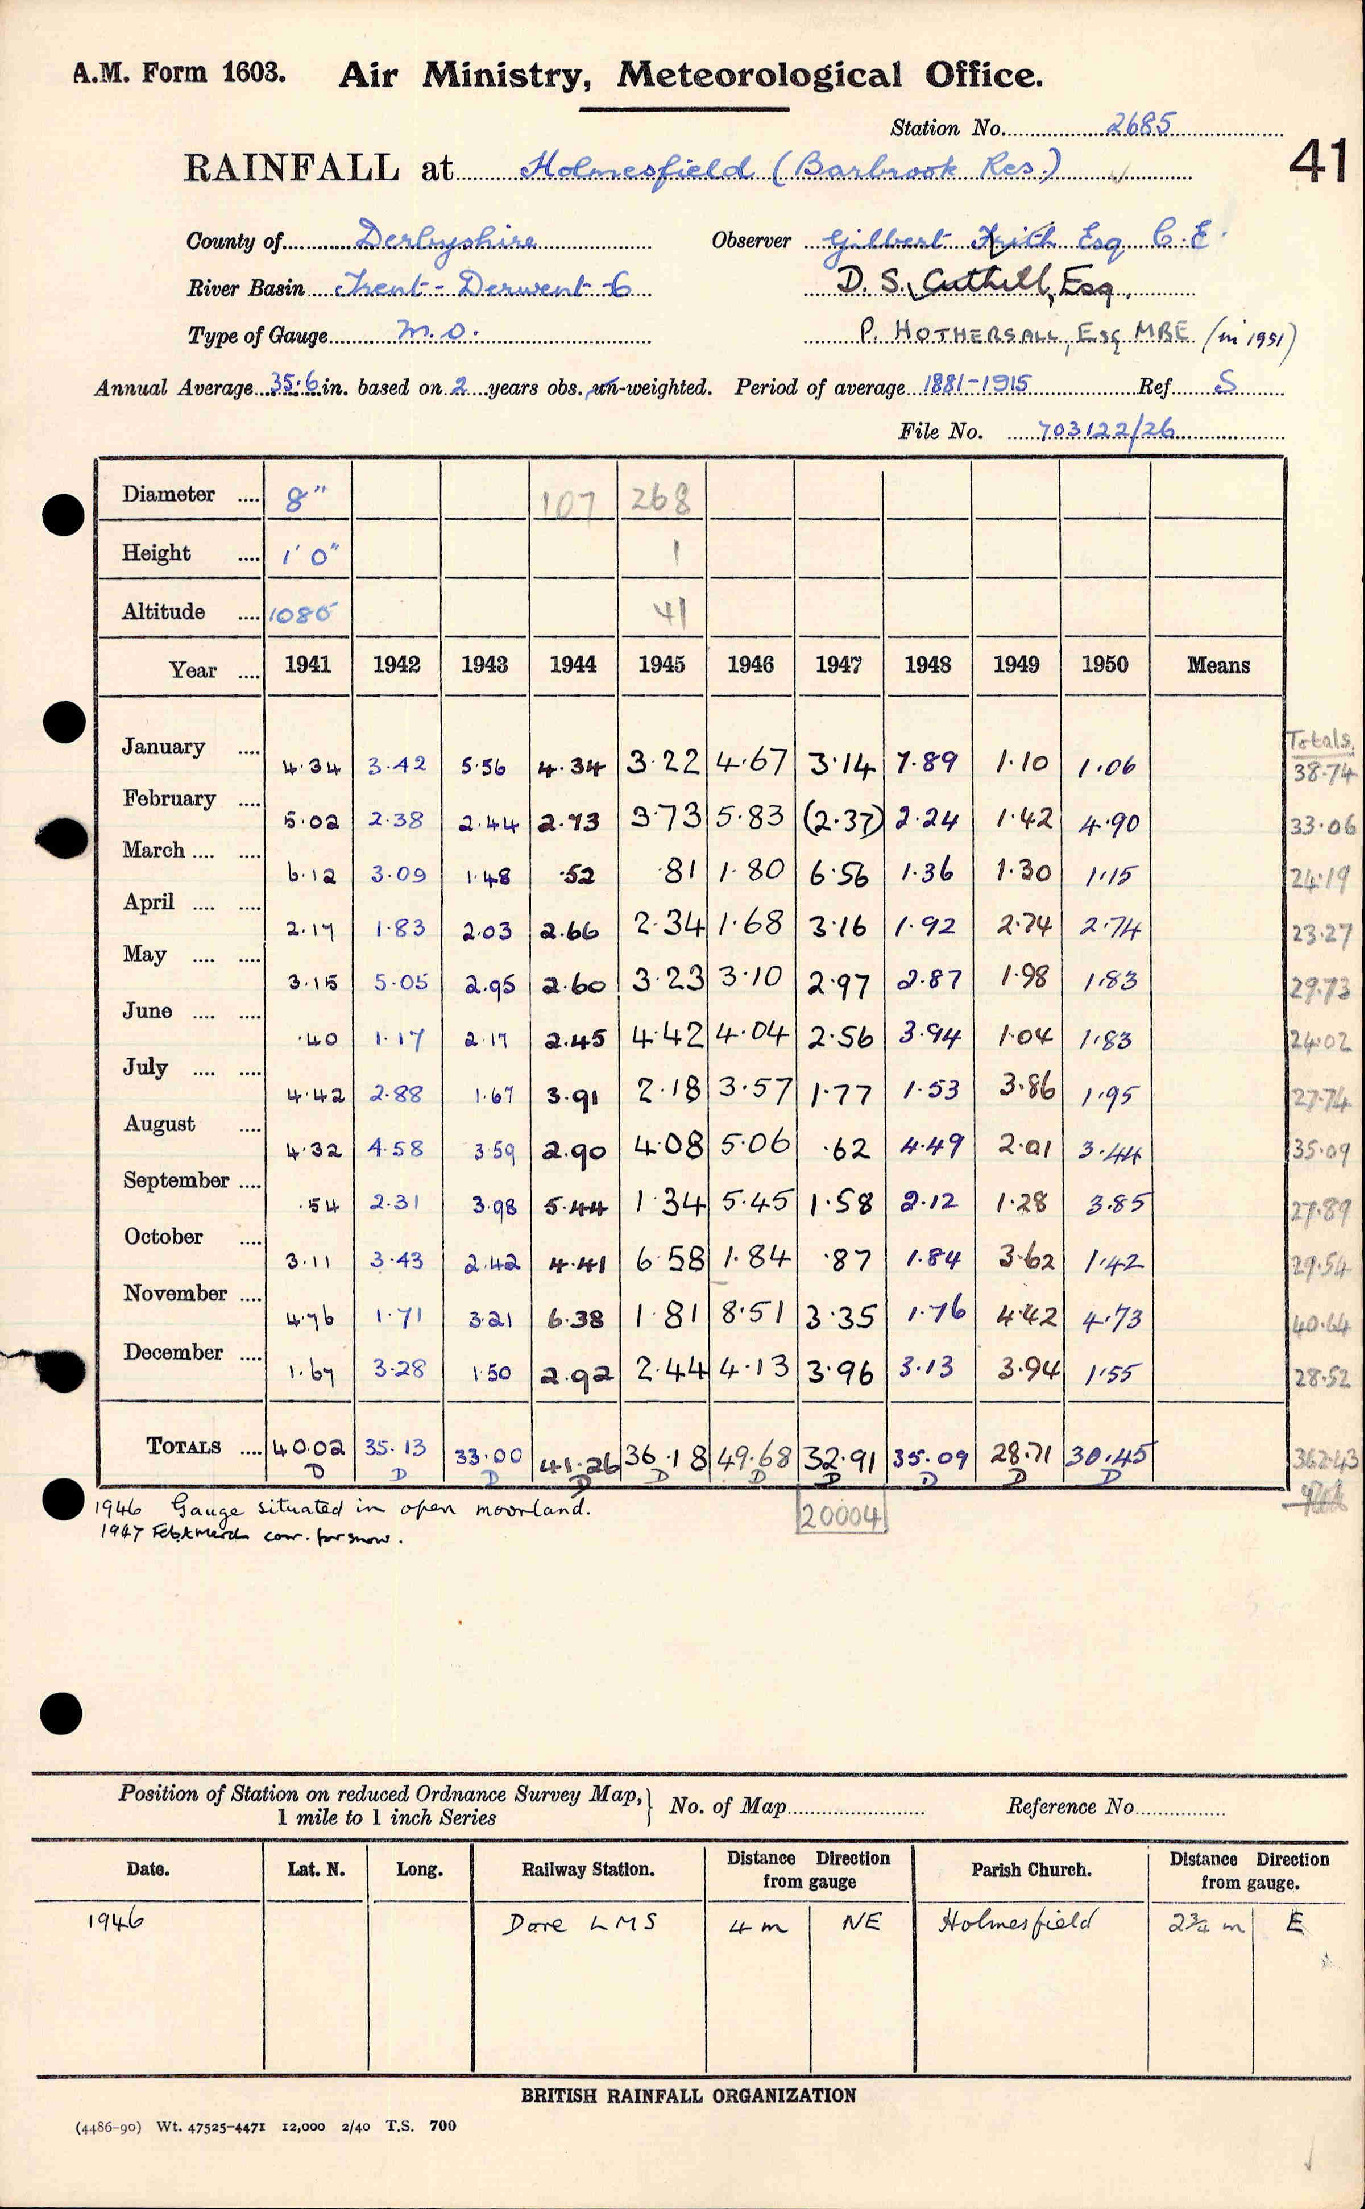 A.M. Form 1603. Air Ministry, Meteorological Office.
Station No. 2685
41
RAINFALL at Holmesfield (Barbrook Res.) ✓
County of Derbyshire Observer Gilbert Frith Esq C.E.
River Basin Trent - Derwent - 6 D. S. Cuthell, Esq.
Type of Gauge M.O. P. HOTHERSALL, ESQ MBE (in 1951)
Annual Average 35.6 in. based on 2 years obs. un-weighted. Period of average 1881-1915 Ref S
File No. 703122/26
Diameter .... 8" 107 268
Height .... 1' 0" 1
Altitude .... 1085 41
Year .... 1941 1942 1943 1944 1945 1946 1947 1948 1949 1950 Means
Totals
January .... 4.34 3.42 5.56 4.34 3.22 4.67 3.14 7.89 1.10 1.06 38.74
February .... 5.02 2.38 2.44 2.73 3.73 5.83 (2.37) 2.24 1.42 4.90 33.06
March .... .... 6.12 3.09 1.48 .52 .81 1.80 6.56 1.36 1.30 1.15 24.19
April .... .... 2.17 1.83 2.03 2.66 2.34 1.68 3.16 1.92 2.74 2.74 23.27
May .... .... 3.15 5.05 2.95 2.60 3.23 3.10 2.97 2.87 1.98 1.83 29.73
June .... .... .40 1.17 2.17 2.45 4.42 4.04 2.56 3.94 1.04 1.83 24.02
July .... .... 4.42 2.88 1.67 3.91 2.18 3.57 1.77 1.53 3.86 1.95 27.74
August .... 4.32 4.58 3.59 2.90 4.08 5.06 .62 4.49 2.01 3.44 35.09
September .... .54 2.31 3.98 5.44 1.34 5.45 1.58 2.12 1.28 3.85 27.89
October .... 3.11 3.43 2.42 4.41 6.58 1.84 .87 1.84 3.62 1.42 29.54
November .... 4.76 1.71 3.21 6.38 1.81 8.51 3.35 1.76 4.42 4.73 40.64
December .... 1.67 3.28 1.50 2.92 2.44 4.13 3.96 3.13 3.94 1.55 28.52
TOTALS .... 40.02 35.13 33.00 41.26 36.18 49.68 32.91 35.09 28.71 30.45 362.43
D D D D D D D D D D
1946 Gauge situated in open moorland. 20004
1947 Feb & March corr. for snow.
Position of Station on reduced Ordnance Survey Map, 1 mile to 1 inch Series } No. of Map Reference No
Date. Lat. N. Long. Railway Station. Distance Direction from gauge Parish Church. Distance Direction from gauge.
1946 Dore LMS 4 m NE Holmesfield 2¾ m E
BRITISH RAINFALL ORGANIZATION
(4486-90) Wt. 47525-4471 12,000 2/40 T.S. 700